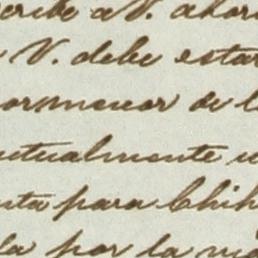 cribe a V. ahor
V. debe estar
pormenor de l
ctualmente u
nta para Chih
la por la